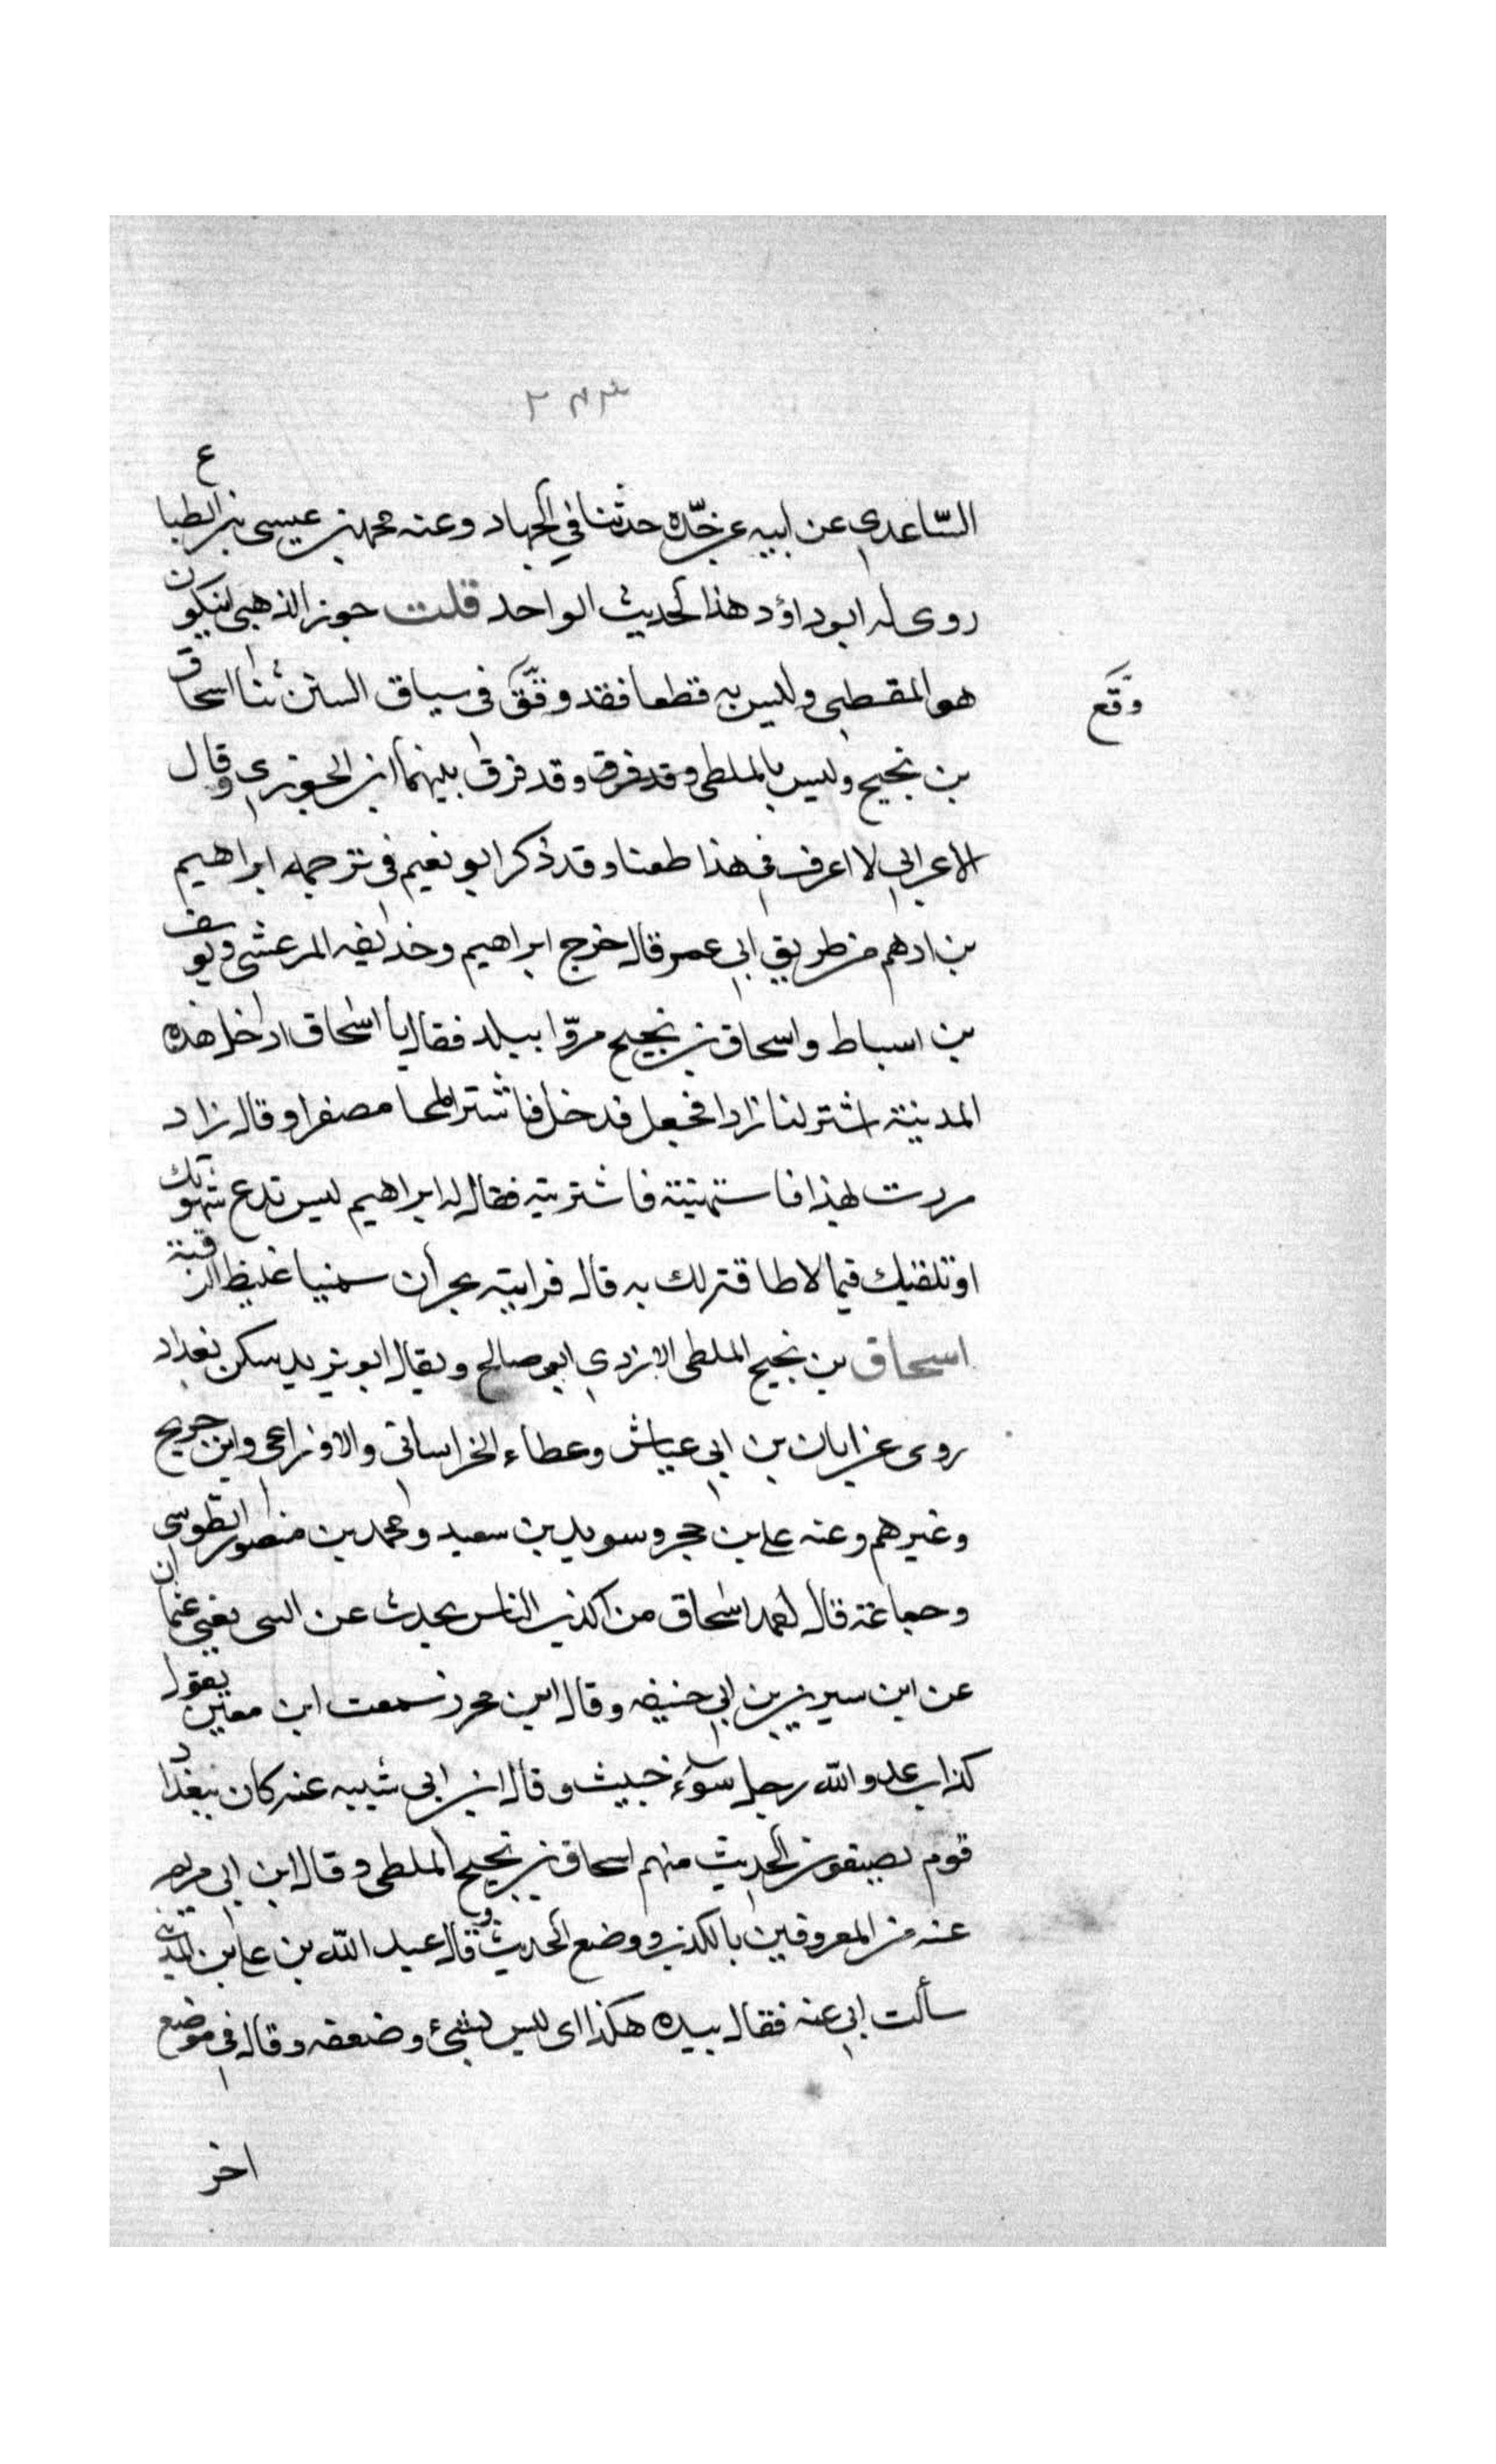 ٢٤٣
الساعدي عن ابيه عن جده حدثنا في الجهاد وعنه محمد بن عيسى بن الطباع
روى له ابو داؤد هذا الحديث الواحد قلت جوز الذهبي ان يكون
هو المقسطي وليس به قطعا فقد وقع في سياق السنن ثنا اسحاق
وقع
بن نجيح وليس بالملطي وقد فرق وقد فرق بينهما ابن الجوزي وقال
الاعرابي لا اعرف في هذا طعنا وقد ذكر ابو نعيم في ترجمه ابراهيم
بن ادهم من طريق ابي عمر قال خرج ابراهيم وحذيفه المرعشي ويوسف
بن اسباط واسحاق بن نجيح مروا ببلد فقال يا اسحاق ادخل هذه
المدينة اشتر لنا زادا فدخل فاشترا ملحا مصفرا وقال زاد
مردت بهذا فاستهيته فاشتريته فقال له ابراهيم ليس تدع شهوتك
او تلقيك فيما لا طاقة لك به قال فرايته بحران سمينا غليظ الرقبة
اسحاق بن نجيح الملطي الازدي ابو صالح ويقال ابو يزيد سكن بغداد
روى عن ابان بن ابي عياش وعطاء الخراساني والاوزاعي وابن جريح
وغيرهم وعنه علي بن حجر وسويد بن سعيد ومحمد بن منصور الطوسي
وجماعة قال احمد اسحاق من اكذب الناس يحدث عن البتي يعني عثمان
عن ابن سيرين بن ابي حنيفه وقال ابن محرز سمعت ابن معين يقول
كذاب عدو الله رجل سوء خبيث وقال ابن ابي شيبه عنه كان ببغداد
قوم يضعون الحديث منهم اسحاق بن نجيح الملطي وقال ابن ابي مريم
عنه من المعروفين بالكذب ووضع الحديث وقال عبد الله بن علي بن المديني
سألت ابي عنه فقال بيده هكذا اي ليس بشئ وضعفه وقال في موضع
اخر